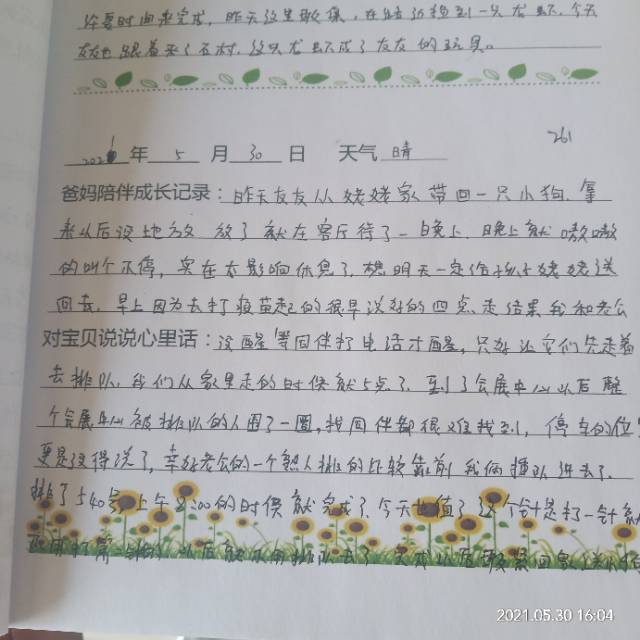 你要时间来完成，昨天这里歇集，在路边捡到一只龙虾，今天
友友也跟着来了石村，这只龙虾成了友友的玩具。
261
2021年5月30日 天气 晴
爸妈陪伴成长记录：昨天友友从姥姥家带回一只小狗，拿
来以后没地方放，放了就在客厅待了一晚上，晚上就嗷嗷
的叫个不停，实在太影响休息了，想明天一定给她姥姥送
回去，早上因为去打疫苗起的很早说好的四点走结果我和老公
对宝贝说说心里话：没醒等同伴打电话才醒，只好让它们先走着
去排队，我们从家里走的时候就5点了，到了会展中心以后整
个会展中心被排队的人围了一圈，找同伴都很难找到，停车的位
更是没得说了，幸好老公的一个熟人排的比较靠前我俩插队进去了，
排了540号上午8:00的时候就完成了，今天也值了这个针是打一针
以后就不用排队去了
2021.05.30 16:04